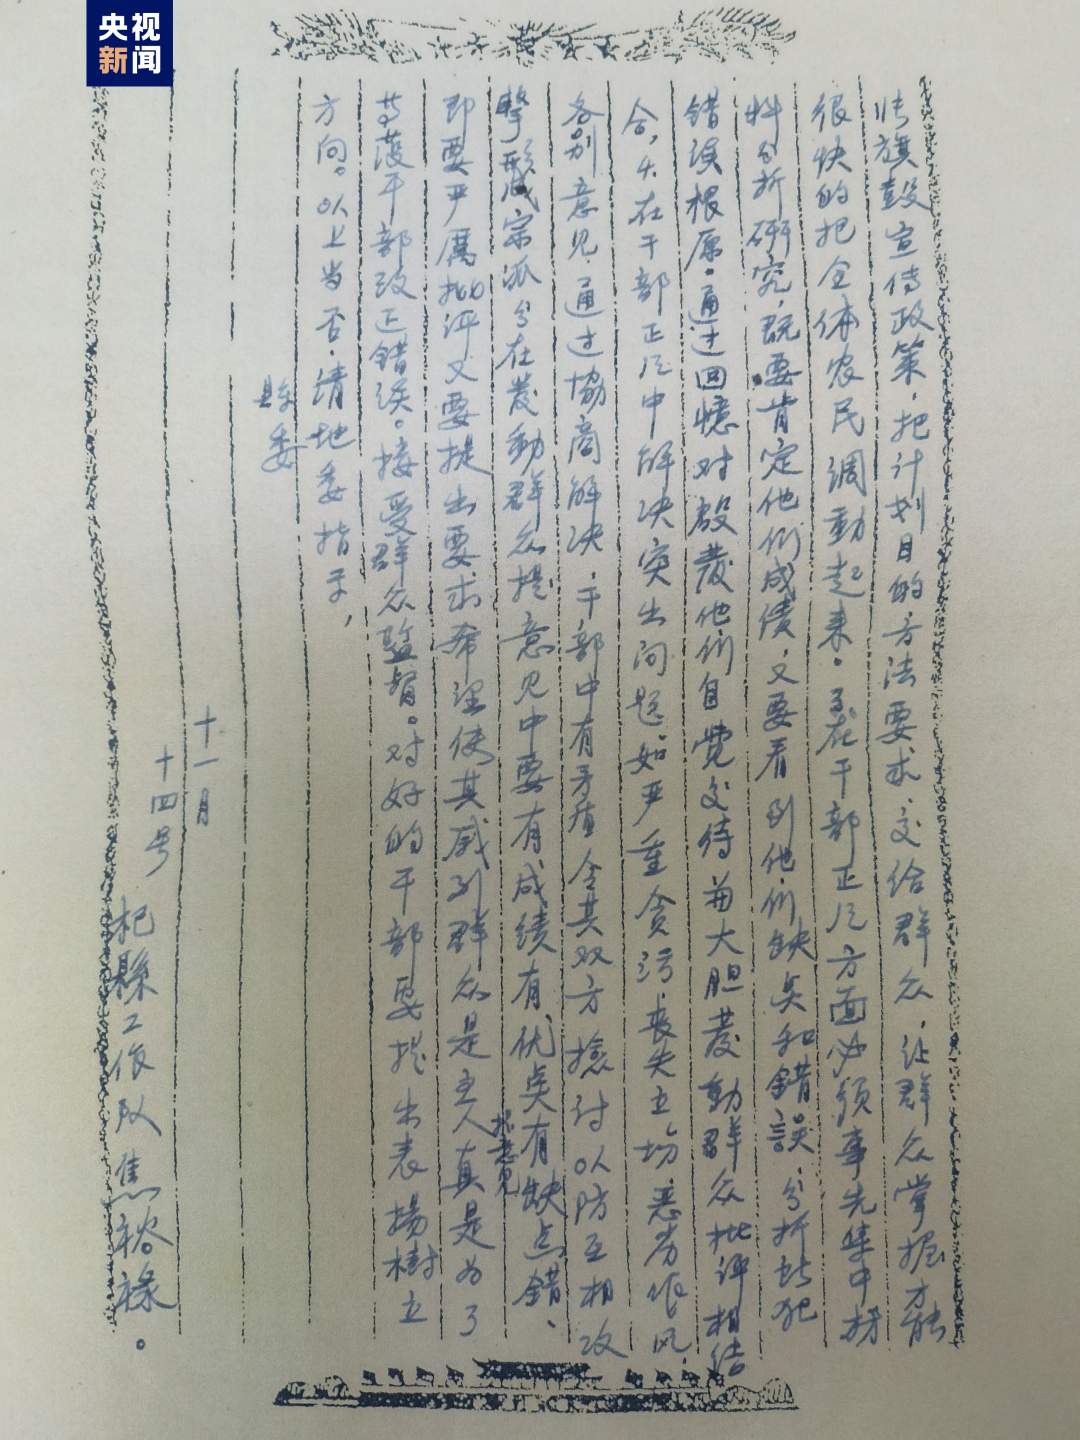 央视
新闻
旗鼓宣传政策，把计划目的方法要求，交给群众，让群众掌握才能
很快的把全体农民调動起来。3.在干部正风方面必须事先集中材
料分析研究，既要肯定他们成绩，又要看到他们缺点和錯誤，分析其犯
錯误根原，通过回憶对比啟發他们自覺交待與大胆發動群众批评相结
合，4.在干部正风中解决突出问题如严重贪污，丧失立场，恶劣作风，
各别意见，通过協商解决，干部中有矛盾令其双方檢讨以防互相攻
擊形成宗派，5.在發動群众提意见中要有成績有优点有缺点錯、
提意见
即要严厲批评又要提出要求希望使其感到群众是主人真是为了
干部改正錯误。接受群众监督。对好的干部要提出表揚樹立
方向。以上当否，请地委指示，
县委
十一月
十四号
杞縣工作队焦裕禄。